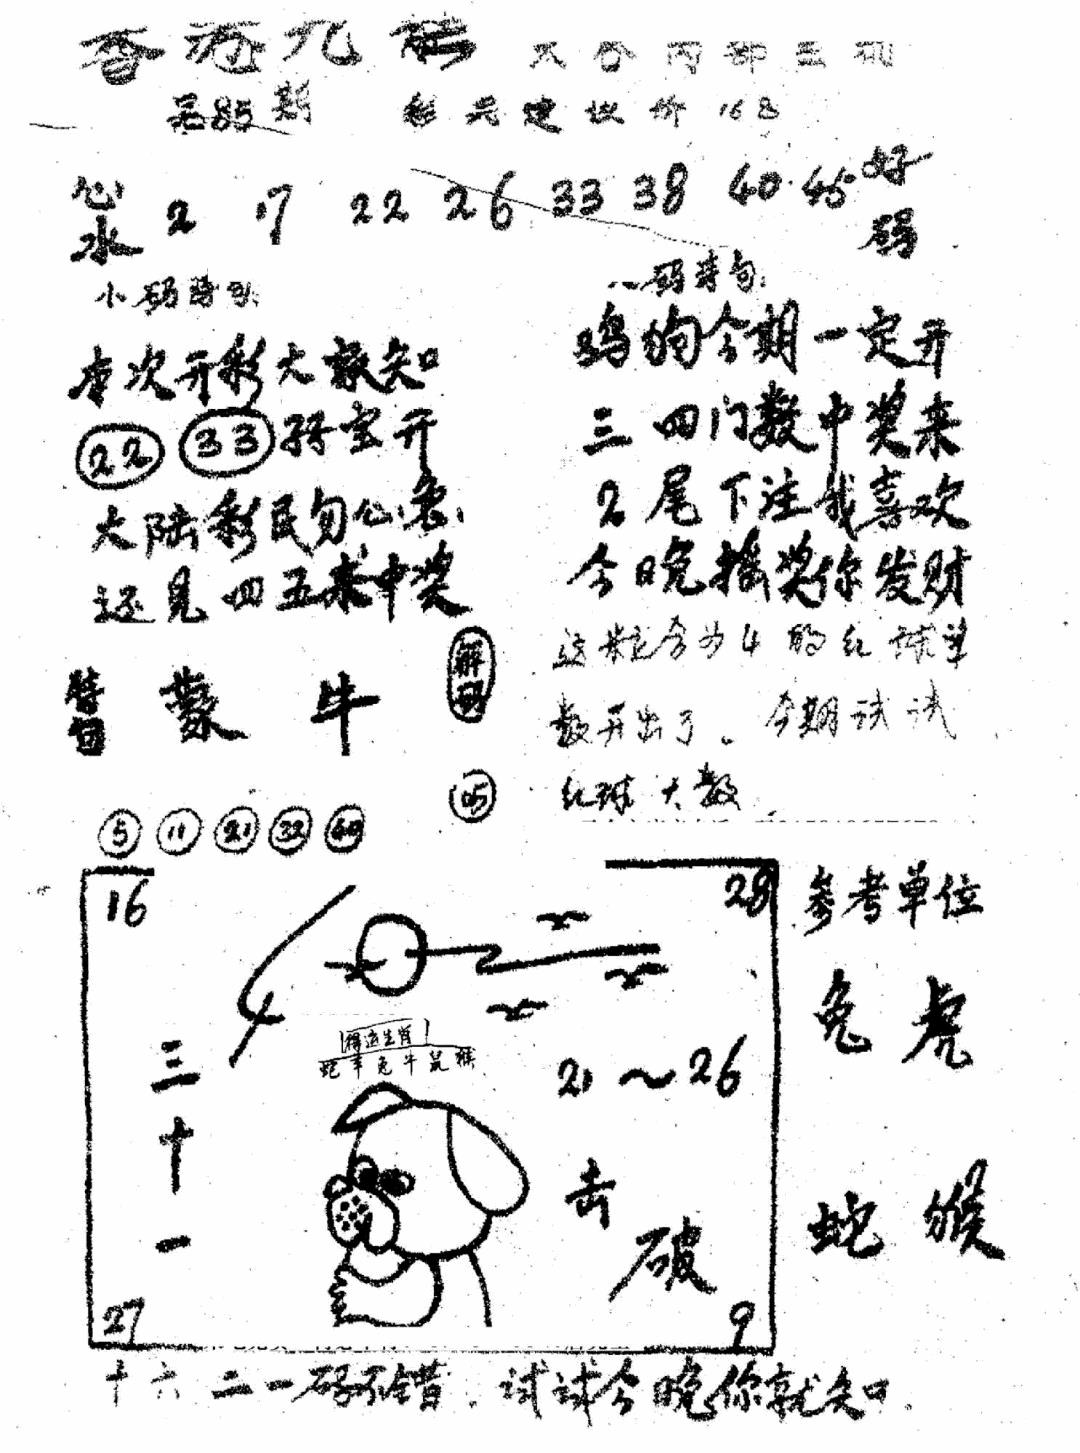 香港九龙 内部
第85期 彩元建议价168
心水 2 17 22 26 33 38 40 45 好码
小码诗句:
本次开彩大家知
22 33 宝开
大陆彩民勿心急
还是四五来中奖
特句 蒙牛 解码
05
5 11 21 32 49
八码诗句:
鸡狗今期一定开
三四门数中奖来
2尾下注我喜欢
今晚摇奖你发财
4的红球单
数开出了。今期试试
红球大数
16 28
得道生肖
蛇羊兔牛鼠猴
三十一
21~26
击破
27 9
参考单位
兔虎
蛇猴
十六二一码不错.试试今晚你就知.